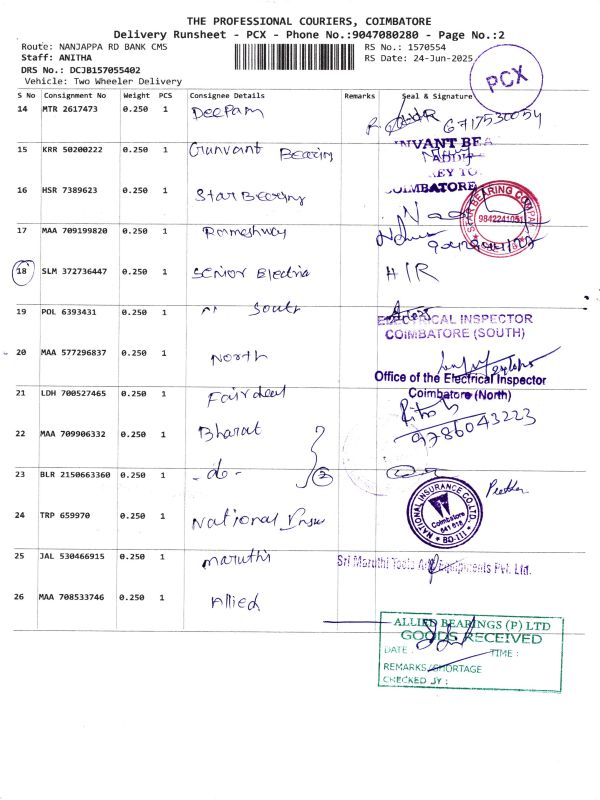 THE PROFESSIONAL COURIERS, COIMBATORE
Delivery Runsheet - PCX - Phone No.:9047080280 - Page No.:2
Route: NANJAPPA RD BANK CMS RS No.: 1570554
Staff: ANITHA RS Date: 24-Jun-2025
DRS No.: DCJB157055402
Vehicle: Two Wheeler Delivery
PCX
S No Consignment No Weight PCS Consignee Details Remarks Seal & Signature
14 MTR 2617473 0.250 1 Deepam
15 KRR 50200222 0.250 1 Gunvant Bearing
UNVANT BEA
16 HSR 7389623 0.250 1 Star Bearing
COIMBATORE
STAR BEARING COMPANY
9842241051
17 MAA 709199820 0.250 1
18 SLM 372736447 0.250 1 Senior Electric
19 POL 6393431 0.250 1 " South
ELECTRICAL INSPECTOR
COIMBATORE (SOUTH)
20 MAA 577296837 0.250 1 North
Office of the Electrical Inspector
Coimbatore (North)
21 LDH 700527465 0.250 1 Fairdeal
22 MAA 709906332 0.250 1 Bharat
9786043223
23 BLR 2150663360 0.250 1 - do - 2
24 TRP 659970 0.250 1 National Insu
NATIONAL INSURANCE CO.LTD
Coimbatore
641 018
BO-III
25 JAL 530466915 0.250 1 maruthi
Sri Maruthi Tools And Equipments Pvt. Ltd.
26 MAA 708533746 0.250 1 Allied
ALLIED BEARINGS (P) LTD
GOODS RECEIVED
DATE : TIME :
REMARKS/SHORTAGE
CHECKED BY :